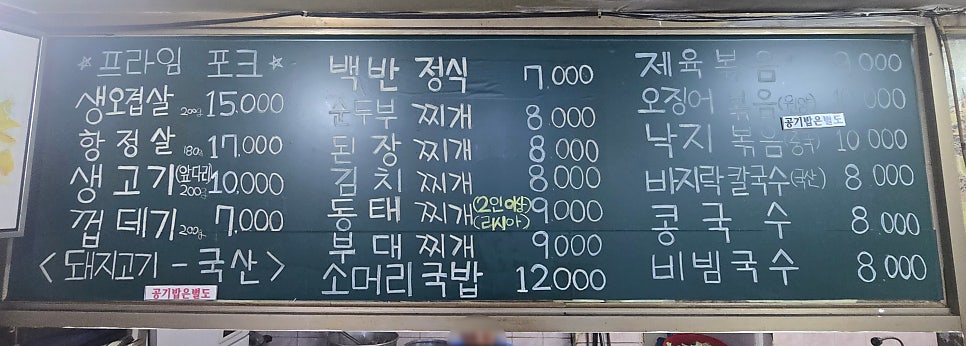 *프라임 포크*
생오겹살 200g 15.000
항정살 180g 17.000
생고기(앞다리) 200g 10.000
껍데기 200g 7.000
<돼지고기 - 국산>
공기밥은별도
백반정식 7.000
순두부 찌개 8.000
된장 찌개 8.000
김치 찌개 8.000
동태 찌개(2인이상)(러시아) 9.000
부대찌개 9.000
소머리국밥 12.000
제육볶음 9.000
오징어 볶음
공기밥은별도
낙지 볶음(중국) 10.000
바지락칼국수(국산) 8.000
콩국수 8.000
비빔국수 8.000